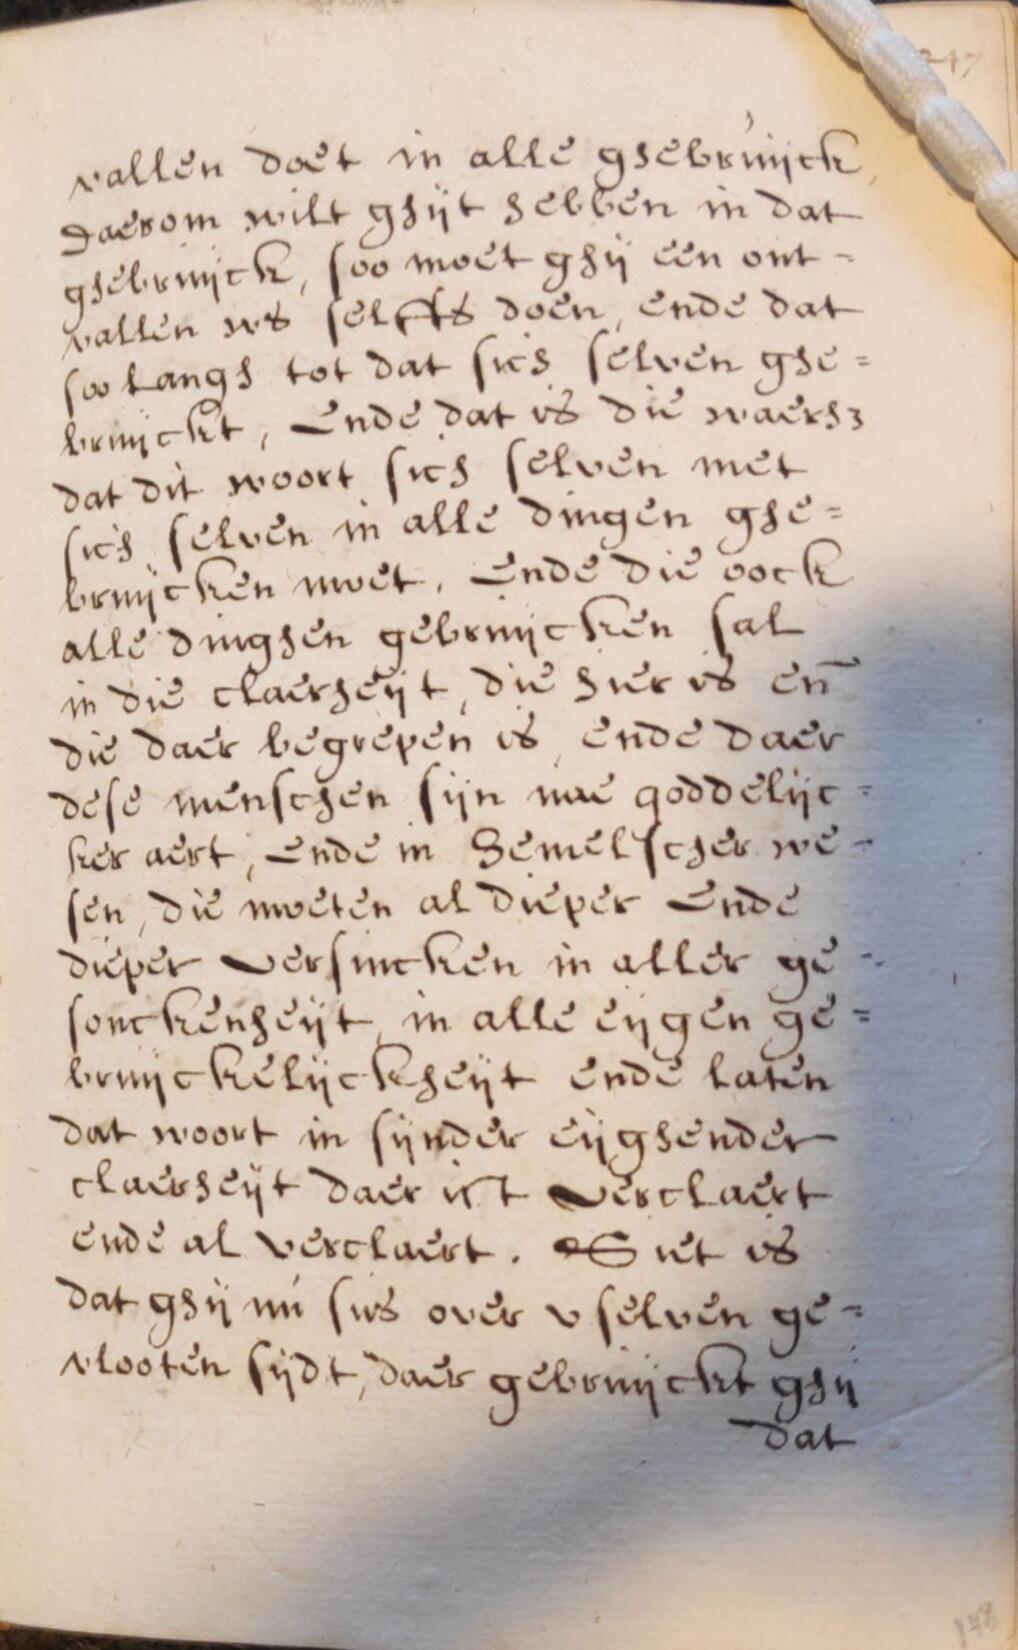 247
vallen doet in alle ghebruijck,
Daerom wilt ghijt hebben in dat
ghebruijck, soo moet ghij een ont=
vallen ws selffs doen, ende dat
soo langh tot dat sich selven ghe=
bruijckt, Ende dat is die waerh3
dat dit woort sich selven met
sich selven in alle dingen ghe=
bruijcken moet. Ende die oock
alle dinghen gebruijcken sal
in die claerheijt, die hier is en̄
die daer begrepen is, ende daer
dese menschen sijn nae goddelijc=
ker aert, Ende in Hemelscher we=
sen, die moeten al dieper Ende
dieper versincken in aller ge=
sonckenheijt, in alle eijgen ge=
bruijckelijckheijt ende laten
dat woort in sijnder eijghender
claerheijt daer ist verclaert
ende al verclaert. Siet is
dat ghij nu sus over v selven ge=
vlooten sijdt, daer gebruijckt ghij
dat